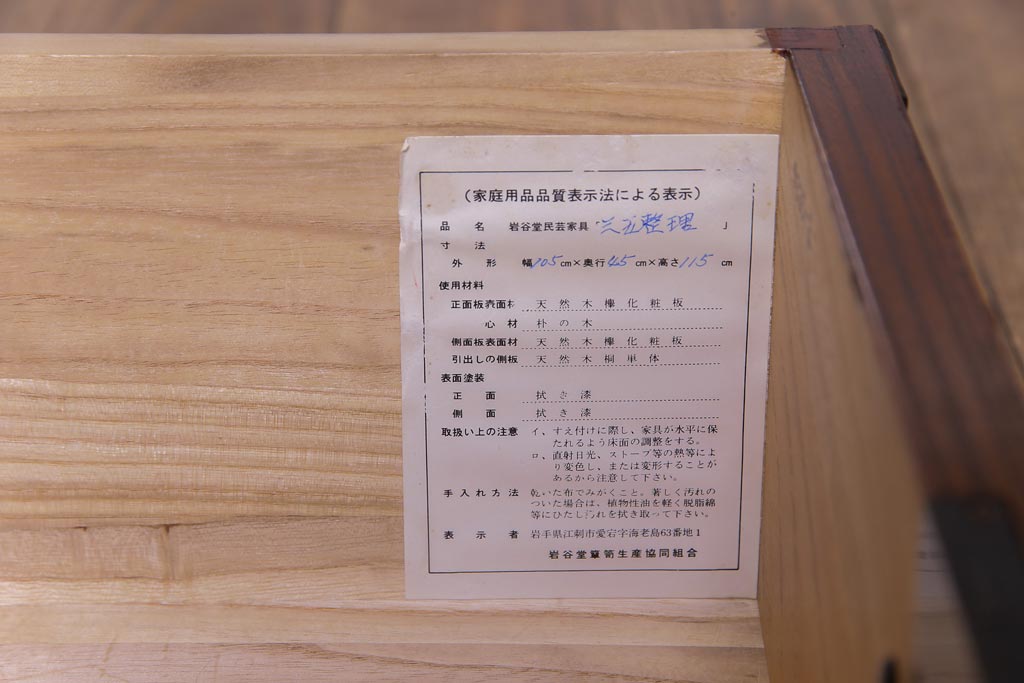 (家庭用品品質表示法による表示)
品名 岩谷堂民芸家具「三五整理」
寸法
外形 幅105cm×奥行45cm×高さ115cm
使用材料
正面板表面材 天然木欅化粧板
心材 朴の木
側面板表面材 天然木欅化粧板
引出しの側板 天然木桐単体
表面塗装
正面 拭き漆
側面 拭き漆
取扱い上の注意 イ、すえ付けに際し、家具が水平に保
たれるよう床面の調整をする。
ロ、直射日光、ストーブ等の熱等によ
り変色し、または変形することが
あるから注意して下さい。
手入れ方法 乾いた布でみがくこと。著しく汚れの
ついた場合は、植物性油を軽く脱脂綿
等にひたし汚れを拭き取って下さい。
表示者 岩手県江刺市愛宕字海老島63番地1
岩谷堂簞笥生産協同組合